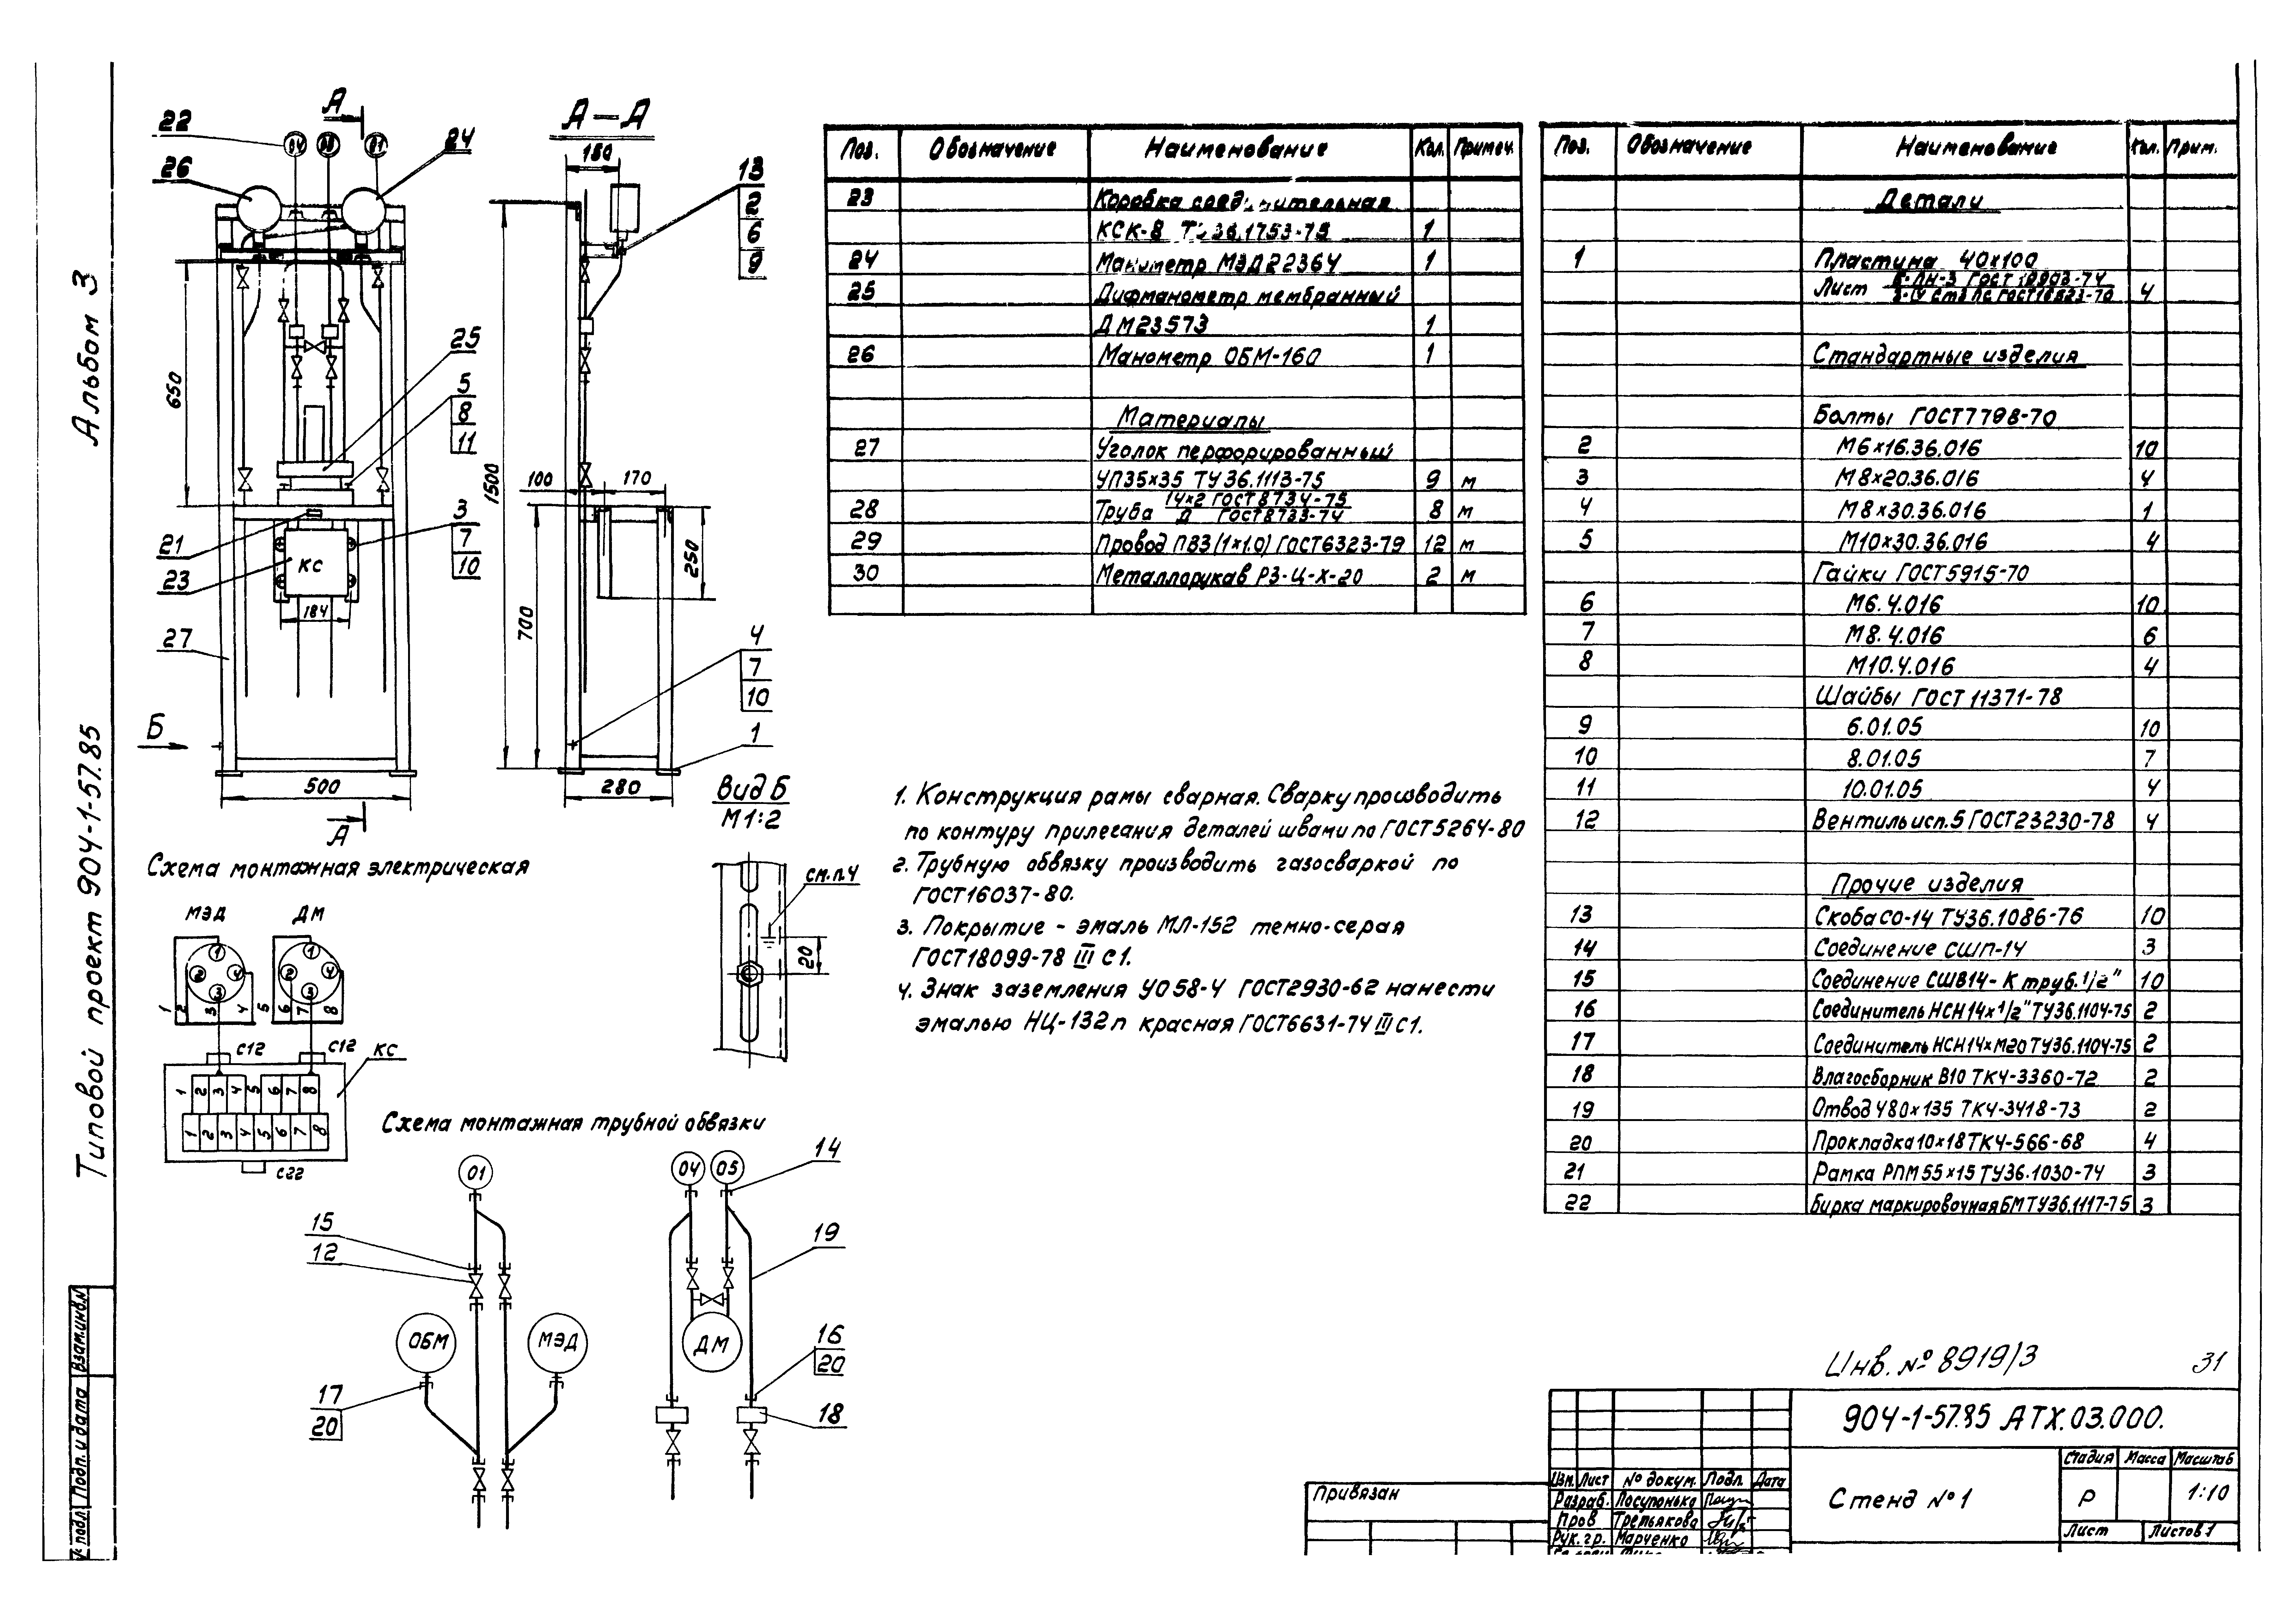 Альбом 3
Типовой проект 904-1-57.85
Взам.инв.№
Подп. и дата
А
А-А
22
24
26
04
05
01
25
5
8
11
650
3
7
10
21
23
КС
184
27
Б
500
А
150
13
2
6
9
1500
100
170
250
700
4
7
10
1
280
Вид Б
М1:2
см.п.4
20
Схема монтажная электрическая
МЭД
ДМ
1 2 3 4
1 2 3 4
1 2 3 4 5 6 7 8
С12
С12
КС
1 2 3 4 5 6 7 8
1 2 3 4 5 6 7 8
С22
Схема монтажная трубной обвязки
01
04
05
14
15
12
19
ОБМ
МЭД
ДМ
16
20
17
20
18
Поз. Обозначение Наименование Кол. Примеч.
23 Коробка соединительная
КСК-8 ТУ36.1753-75 1
24 Манометр МЭД22364 1
25 Дифманометр мембранный
ДМ23573 1
26 Манометр ОБМ-160 1
Материалы
27 Уголок перфорированный
УП35х35 ТУ36.1113-75 9 м
28 Труба 14х2 ГОСТ8734-75
Д ГОСТ8733-74 8 м
29 Провод ПВ3(1х1.0) ГОСТ6323-79 12 м
30 Металлорукав РЗ-Ц-Х-20 2 м
1. Конструкция рамы сварная. Сварку производить
по контуру прилегания деталей швами по ГОСТ5264-80
2. Трубную обвязку производить газосваркой по
ГОСТ16037-80.
3. Покрытие - эмаль МЛ-152 темно-серая
ГОСТ18099-78 III С1.
4. Знак заземления УО58-4 ГОСТ2930-62 нанести
эмалью НЦ-132п красная ГОСТ6631-74 III С1.
Поз. Обозначение Наименование Кол. Прим.
Детали
1 Пластина 40х100
Лист 4
Стандартные изделия
Болты ГОСТ7798-70
2 М6х16.36.016 10
3 М8х20.36.016 4
4 М8х30.36.016 1
5 М10х30.36.016 4
Гайки ГОСТ5915-70
6 М6.4.016 10
7 М8.4.016 6
8 М10.4.016 4
Шайбы ГОСТ 11371-78
9 6.01.05 10
10 8.01.05 7
11 10.01.05 4
12 Вентиль исп.5 ГОСТ23230-78 4
Прочие изделия
13 Скоба СО-14 ТУ36.1086-76 10
14 Соединение СШП-14 3
15 Соединение СШВ14-К труб.1/2" 10
16 Соединитель НСН14х1/2" ТУ36.1104-75 2
17 Соединитель НСН14хМ20 ТУ36.1104-75 2
18 Влагосборник В10 ТК4-3360-72 2
19 Отвод У80х135 ТК4-3418-73 2
20 Прокладка 10х18 ТК4-566-68 4
21 Рамка РПМ 55х15 ТУ36.1030-74 3
22 Бирка маркировочная БМ ТУ36.1117-75 3
Инв. № 8919/3
31
904-1-57.85 АТХ.03.000.
Стадия Масса Масштаб
Стенд №1
Р 1:10
Лист Листов 1
Привязан
Изм. Лист № докум. Подп. Дата
Разраб. Посупонько
Пров Третьякова
Рук.гр. Марченко